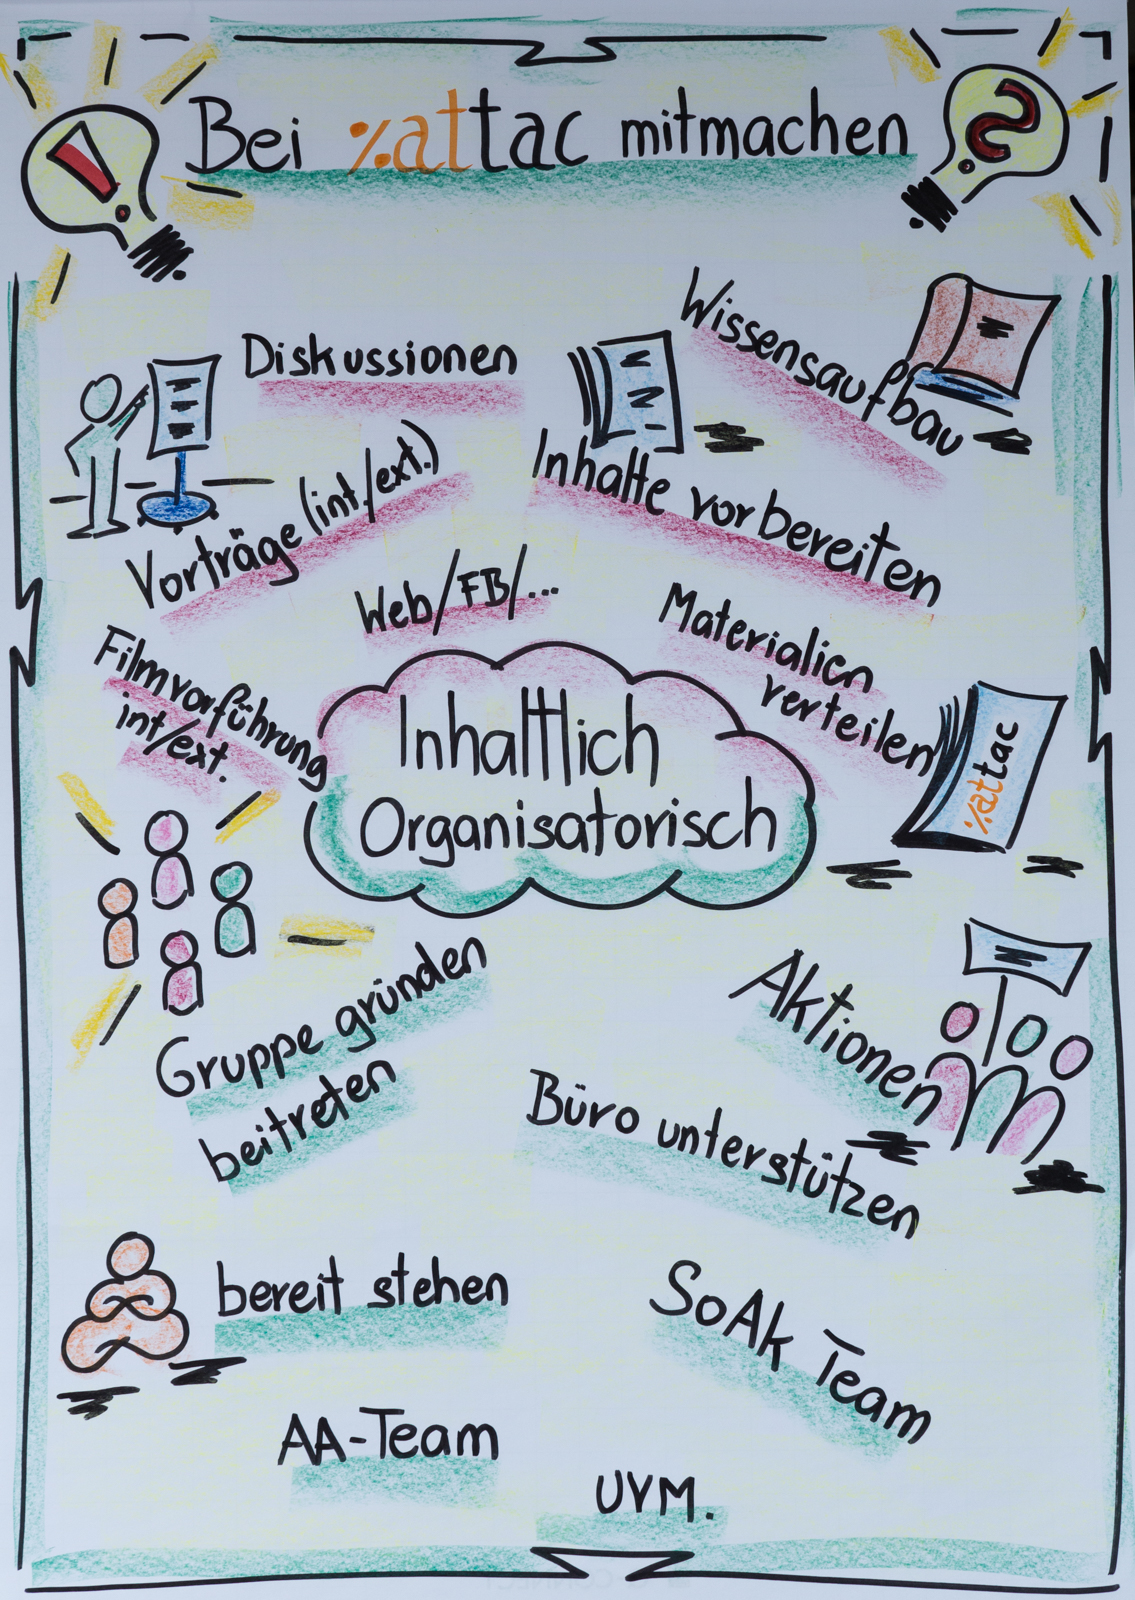 Bei %attac mitmachen
Diskussionen
Wissensaufbau
Vorträge (int./ext.)
Inhalte vorbereiten
Web/FB/...
Materialien
verteilen
Filmvorführung
int/ext.
%attac
Inhaltlich
Organisatorisch
Gruppe gründen
beitreten
Aktionen
Büro unterstützen
bereit stehen
SoAk Team
AA-Team
UVM.